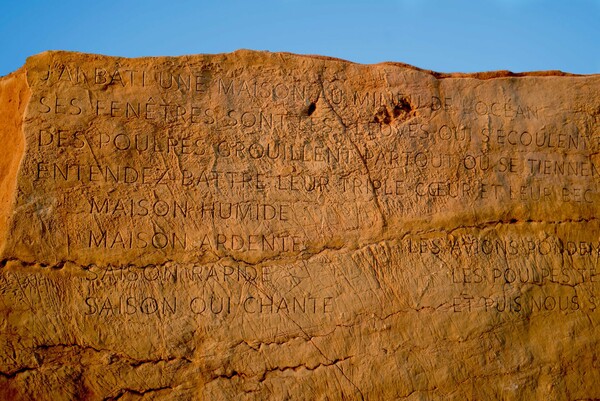 J'AI BATI UNE MAISON AU MILIEU DE L'OCÉAN
SES FENÊTRES SONT LES FLEUVES QUI S'ÉCOULENT
DES POULPES GROUILLENT PARTOUT OÙ SE TIENNEN
ENTENDEZ BATTRE LEUR TRIPLE CŒUR ET LEUR BEC
MAISON HUMIDE
MAISON ARDENTE
SAISON RAPIDE
SAISON QUI CHANTE
LES AVIONS PONDEN
LES POULPES TE
ET PUIS NOUS S